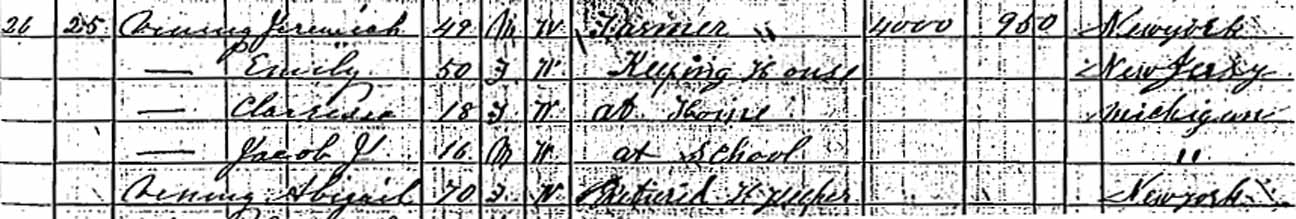 26 25 Vining Jeremiah 49 M W Farmer 4000 950 Newyork
— Emily 50 F W Keeping House New Jersy
— Clarissa 18 F W at Home michigan
— Jacob J 16 M W at School "
Vining Abigail 70 F W Retired H Keeper Newyork